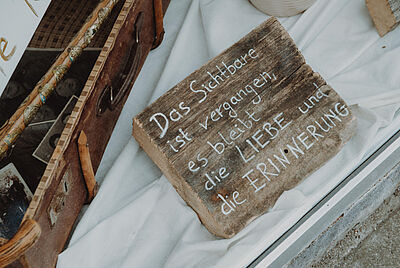 Das Sichtbare
ist vergangen,
es bleibt
die LIEBE und
die ERINNERUNG